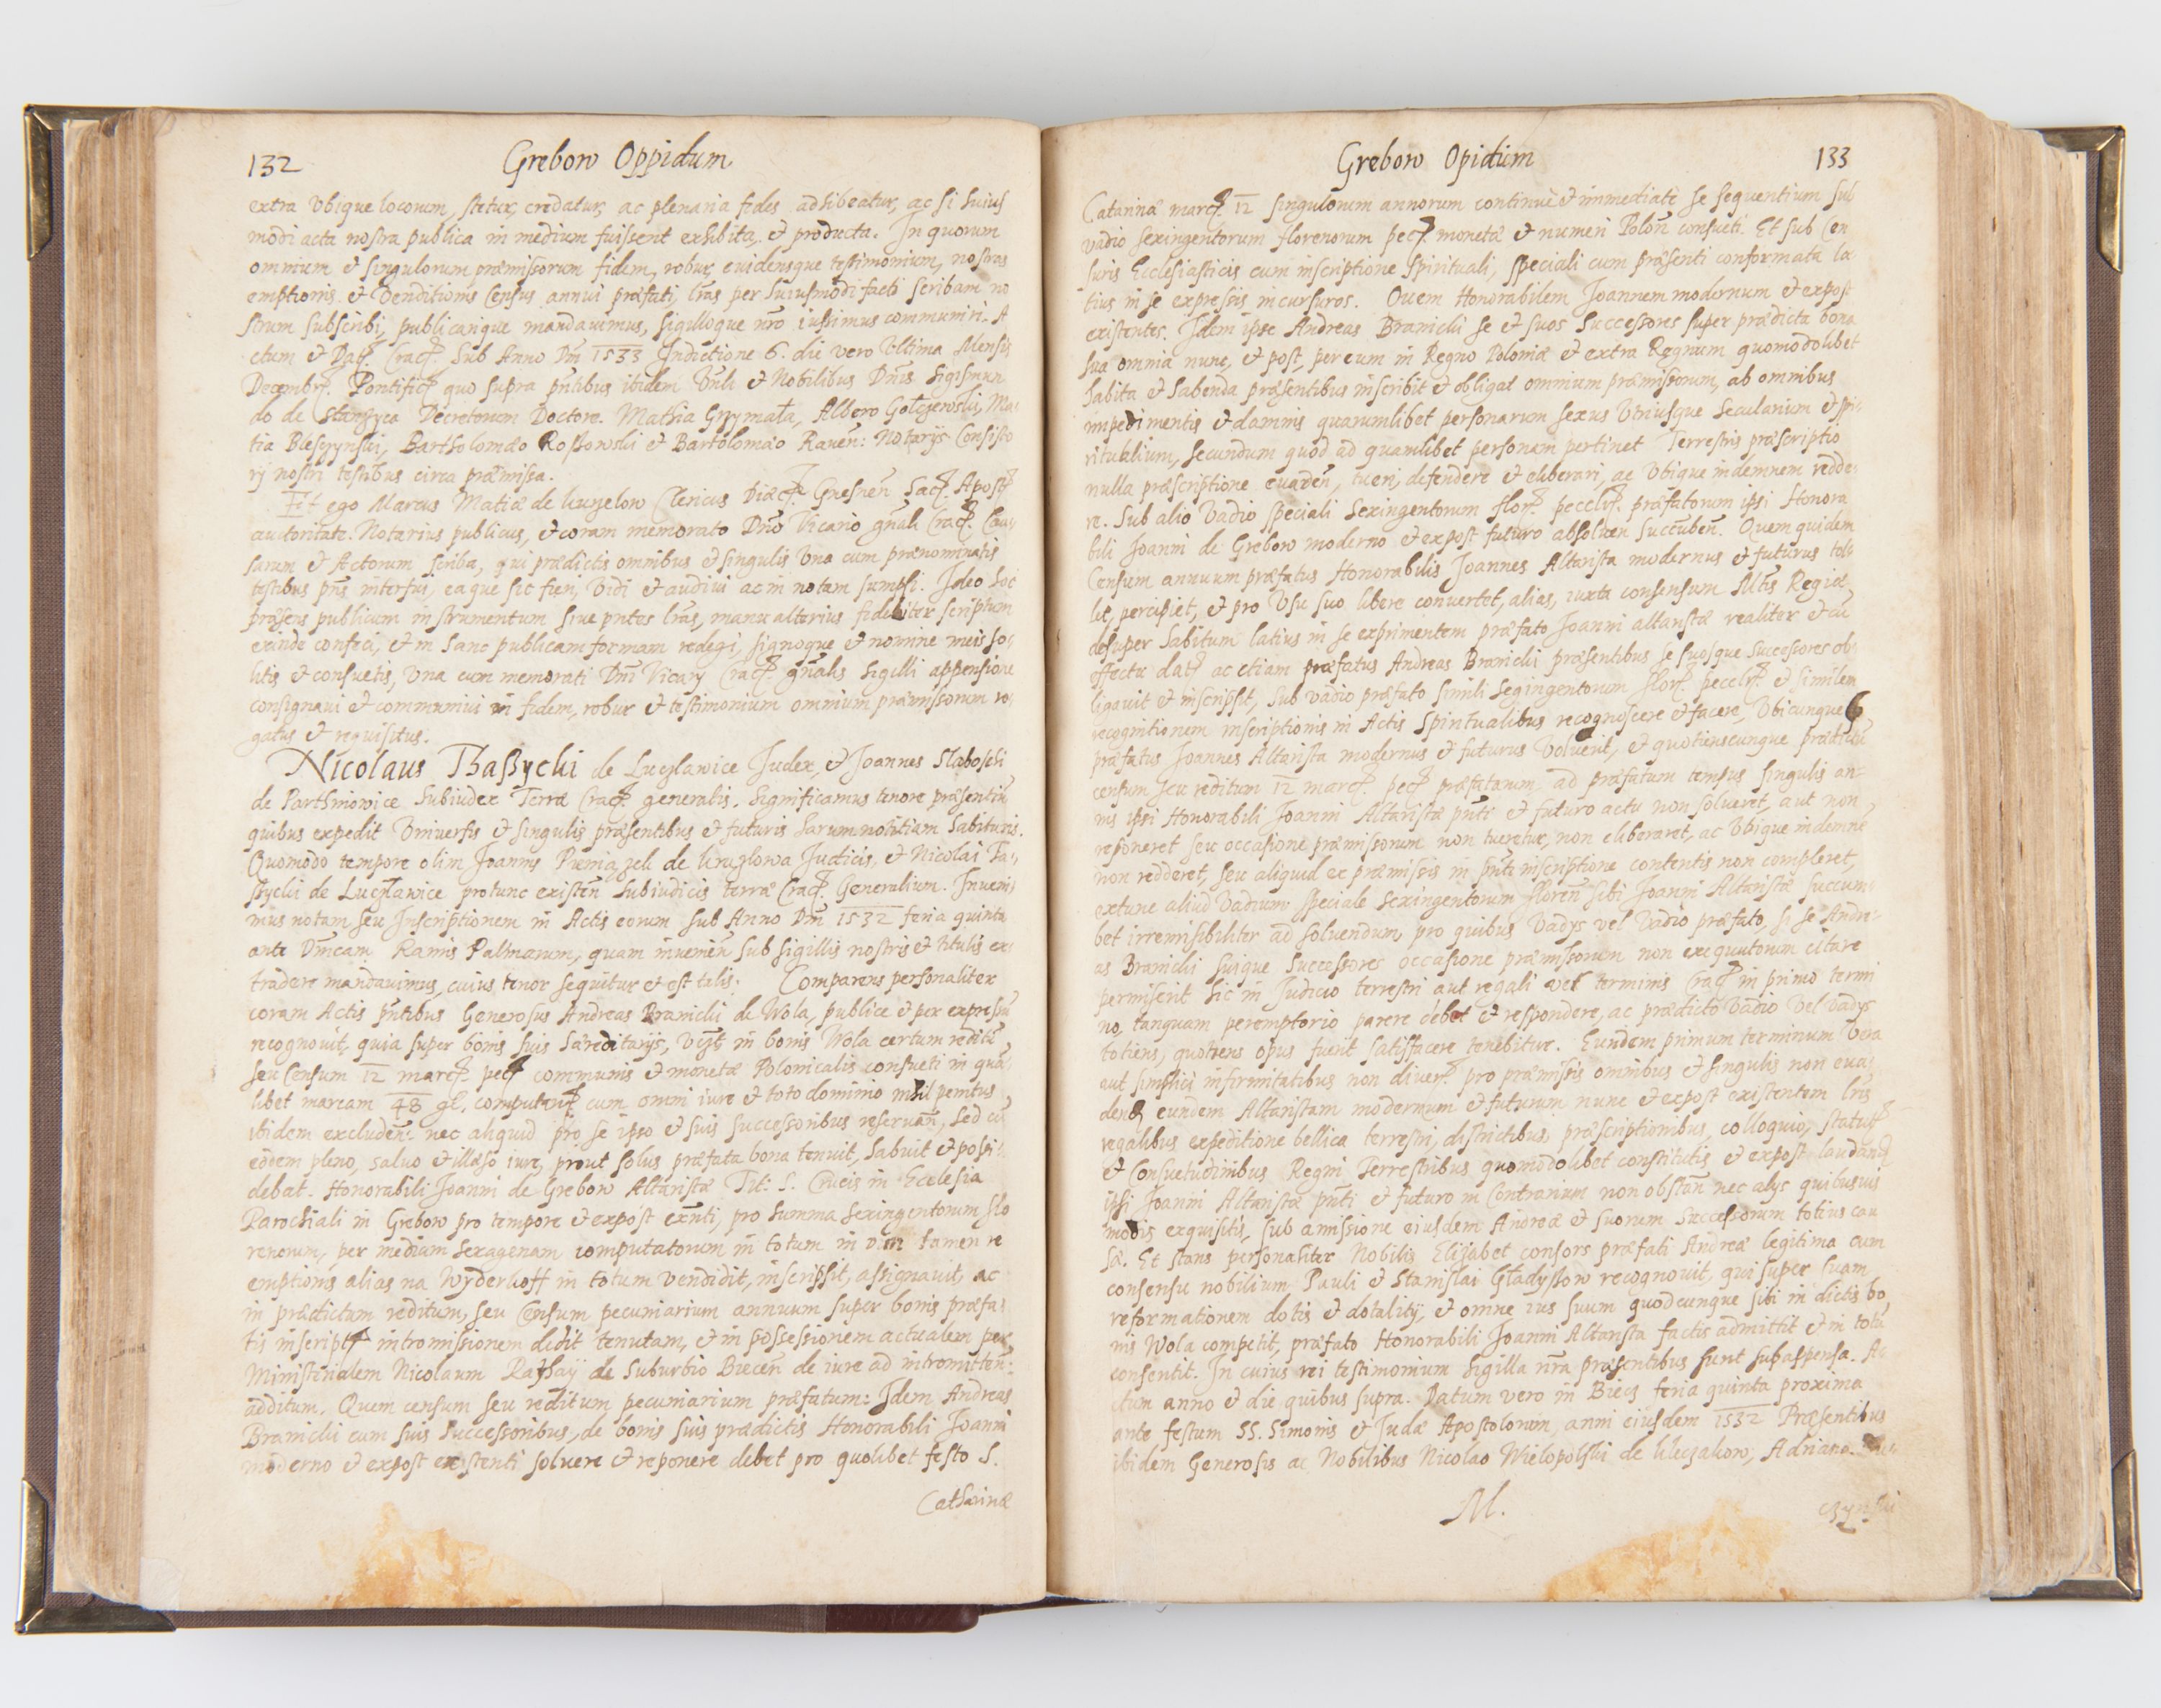 132 Grebow Oppidum
extra Vbique locorum, stetur, credatur, ac plenaria fides adhibeatur, ac si huius
modi acta nostra publica in medium fuissent exhibita, et producta. In quorum
omnium et singulorum præmissorum fidem, robur, euidensque testimonium, nostras
emptionis et Venditionis Census annui præfati, lras per huiusmodi facti scribam no
strum subscribi, publicarique mandauimus, sigilloque nro iussimus communiri. A
ctum et Dat Crac Sub Anno Dni 1533 Indictione 6. die vero Vltima Mensis
Decembr. Pontific quo supra pntibus ibidem Vnli et Nobilibus Dnis Sigismun
do de Stanzyca Decretorum Doctore. Mathia Grzymała, Albero Gołczewski, Ma
tia Bleszynski, Bartholomæo Roszkowski et Bartolomæo Rauen: Notarijs Consisto
rij nostri testibus circa præmissa.
Et ego Marcus Matiæ de Kurzelow Clericus Diæc Gnesnen Sac Apost
auctoritate Notarius publicus, et coram memorato Dno Vicario gnali Crac Cau
sarum et Actorum scriba, qui prædictis omnibus et singulis Vna cum prænominatis
testibus pns interfui, eaque sic fieri, Vidi et audiui ac in notam sumpsi. Ideo hoc
præsens publicum instrumentum siue pntes lras, manu alterius fideliter scriptum
exinde confeci, et in hanc publicam formam redegi, signoque et nomine meis so
litis et consuetis, Vna cum memorati Dni Vicary Crac gnalis Sigilli appensione
consignaui et communiui in fidem, robur et testimonium omnium præmissorum ro
gatus et requisitus.
Nicolaus Thaszycki de Luczlawice Judex, et Joannes Slaboschi
de Parthniowice Subiudex Terræ Crac generalis. Significamus tenore præsentiu
quibus expedit Vniuersis et singulis præsentibus et futuris harum notitiam habituris.
Quomodo tempore olim Joannis Pieniązek de Kruzlowa Judicis, et Nicolai Ta
szycki de Luczlawice protunc existen Subiudicis terræ Crac Generalium. Inueni
mus notam seu Inscriptionem in Actis eorum Sub Anno Dni 1532 feria quinta
ante Dnicam Ramis Palmarum, quam inuenien sub sigillis nostris et titulis ex
tradere mandauimus, cuius tenor sequitur et est talis: Comparens personaliter
coram Actis pntibus Generosus Andreas Branicki de Wola, publice et per expressu
recognouit, quia super bonis suis hæreditarijs, Vizt in bonis Wola certum reditu
seu Censum 12 marc pec communis et monetæ Polonicalis consueti in qua
libet marcam 48 gl. computan cum omni iure et toto dominio nihil penitus
ibidem excluden: nec aliquid pro se ipso et suis successoribus reseruan, sed cu
eodem pleno, saluo et illæso iure, prout solus præfata bona tenuit, habuit et possi
debat. Honorabili Joanni de Grebow Altaristæ Tit: S. Crucis in Ecclesia
Parochiali in Grebow pro tempore et expost exnti, pro summa Sexingentorum flo
renorum, per mediam sexagenam computatorum in totum in Vim tamen re
emptionis alias na Wyderkoff in totum vendidit, inscripsit, assignauit, ac
in prædictum reditum, seu Censum pecuniarium annuum super bonis præfa
tis inscript intromissionem dedit tenutam, et in possessionem actualem per
Ministerialem Nicolaum de Suburbio Biecen de iure ad intromitten:
additum. Quem censum seu reditum pecuniarium præfatum: Idem Andreas
Branicki cum suis Successoribus, de bonis suis prædictis Honorabili Joanni
moderno et expost existenti soluere et reponere debet pro quolibet festo S.
Catharinæ
Grebow Opidum 133
Catarinæ marc. 12 singulorum annorum continuè et immediatè se sequentium sub
vadio sexingentorum florenorum pec monetæ et numeri Polon consueti. Et sub Cen
suris Ecclesiasticis cum inscriptione Spirituali, speciali cum præsenti conformata la
tius in se expressis incursuros. Quem Honorabilem Joannem modernum et expost
existentes. Idem ipse Andreas Branicki se et suos Successores super prædicta bona
sua omnia nunc, et post, per eum in Regno Poloniæ et extra Regnum quomodolibet
habita et habenda præsentibus inscribit et obligat omnium præmissorum, ab omnibus
impedimentis et damnis quarumlibet personarum sexus Vtriusque Secularium et spi
ritualium, secundum quod ad quamlibet personam pertinet Terrestris præscriptio
nulla præscriptione euaden, tueri, defendere et eliberari, ac Vbique indemnem redde
re. Sub alio Vadio speciali Sexingentorum flor pecclr præfatorum ipsi Honora
bili Joanni de Grebow moderno et expost futuro absoluen succuben. Quem quidem
Censum annuum præfatus Honorabilis Joannes Altarista modernus et futurus tol
let, percipiet, et pro Vsu suo libere conuertet, alias, iuxta consensum Mtis Regiæ
desuper habitum latius in se exprimentem præfato Joanni altaristæ realiter et cu
effectu dat ac etiam præfatus Andreas Branicki præsentibus se suosque Successores ob
ligauit et inscripsit, sub vadio præfato simili Segingentorum flor. pecclr et similem
recognitionem inscriptionis in Actis Spiritualibus recognoscere et facere, Vbicunque
præfatus Joannes Altarista modernus et futurus Voluerit, et quotiescunque prædictu
censum seu reditum 12 marc. pec præfatarum ad præfatum tempus singulis an
nis ipsi Honorabili Joanni Altaristæ pnti et futuro actu non solueret, aut non
reponeret seu occasione præmissorum non tueretur, non eliberaret, ac Vbique indemne
non redderet, seu aliquid ex præmissis in pnti inscriptione contentis non compleret,
extunc aliud Vadium speciale Sexingentorum floren sibi Joanni Altaristæ succum
bet irremisibiliter ad soluendum, pro quibus Vadys vel Vadio præfato, si se Andre
as Branicki suique Successores occasione præmissorum non exequutorum citare
permiserit hic in Judicio terrestri aut regali vel terminis Crac in primo termi
no, tanquam peremptorio parere debet et respondere, ac prædicto Vadio Vel Vadys
totiens, quotiens opus fuerit satisfacere tenebitur. Eundem primum terminum Vera
aut simplici infirmitatibus non diuer. pro præmissis omnibus et singulis non eua
den eundem Altaristam modernum et futurum nunc et expost existentem lris
regalibus expeditione bellica terrestri, districtibus, præscriptionibus, colloquio, statut
et Consuetudinibus Regni Terrestribus quomodolibet constitutis et expost laudand
ipsi Joanni Altaristæ pnti et futuro in Contrarium non obstan nec alys quibusuis
modis exquisitis, sub amissione eiusdem Andreæ et suorum Successorum totius cau
sæ. Et stans personaliter Nobilis Elizabet consors præfati Andreæ legitima cum
consensu nobilium Pauli et Stanislai Gładyszow recognouit, qui super suam
reformationem dotis et dotality, et omne ius suum quodcunque sibi in dictis bo
nis Wola competit, præfato Honorabili Joanni Altarista factis admittit et in totu
consentit. In cuius rei testimonium Sigilla nra præsentibus sunt subappensa. Ac
tum anno et die quibus supra. Datum vero in Biecz feria quinta proxima
ante festum SS. Simonis et Judæ Apostolorum, anni eiusdem 1532 Præsentibus
ibidem Generosis ac Nobilibus Nicolao Wielopolski de Kleczakow, Adriano.
M.